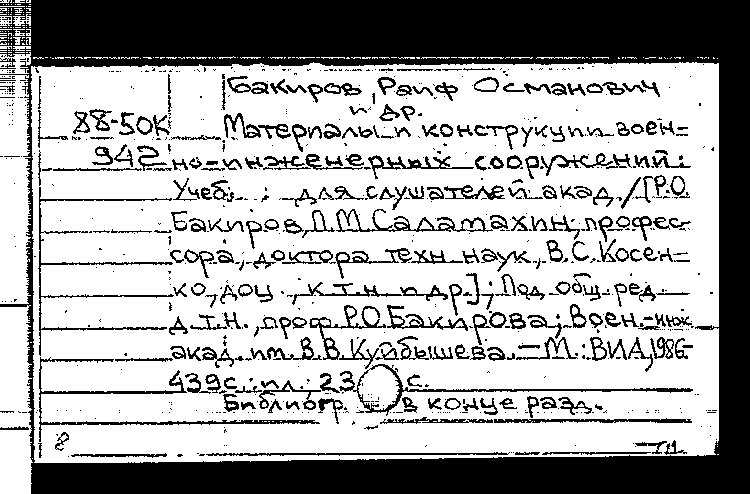 Бакиров, Раиф Османович
и др.
88-50К Материалы и конструкции воен-
942 но-инженерных сооружений:
Учеб. : для слушателей акад. / [Р.О.
Бакиров, П.М. Саламахин, профес-
сора, доктора техн наук, В.С. Косен-
ко, доц., к.т.н и др.]; Под общ. ред.
д.т.н., проф. Р.О. Бакирова; Воен.-инж.
акад. им. В.В. Куйбышева. – М.: ВИА, 1986-
439 с.: ил.; 23 с.
Библиогр. в конце разд.
8